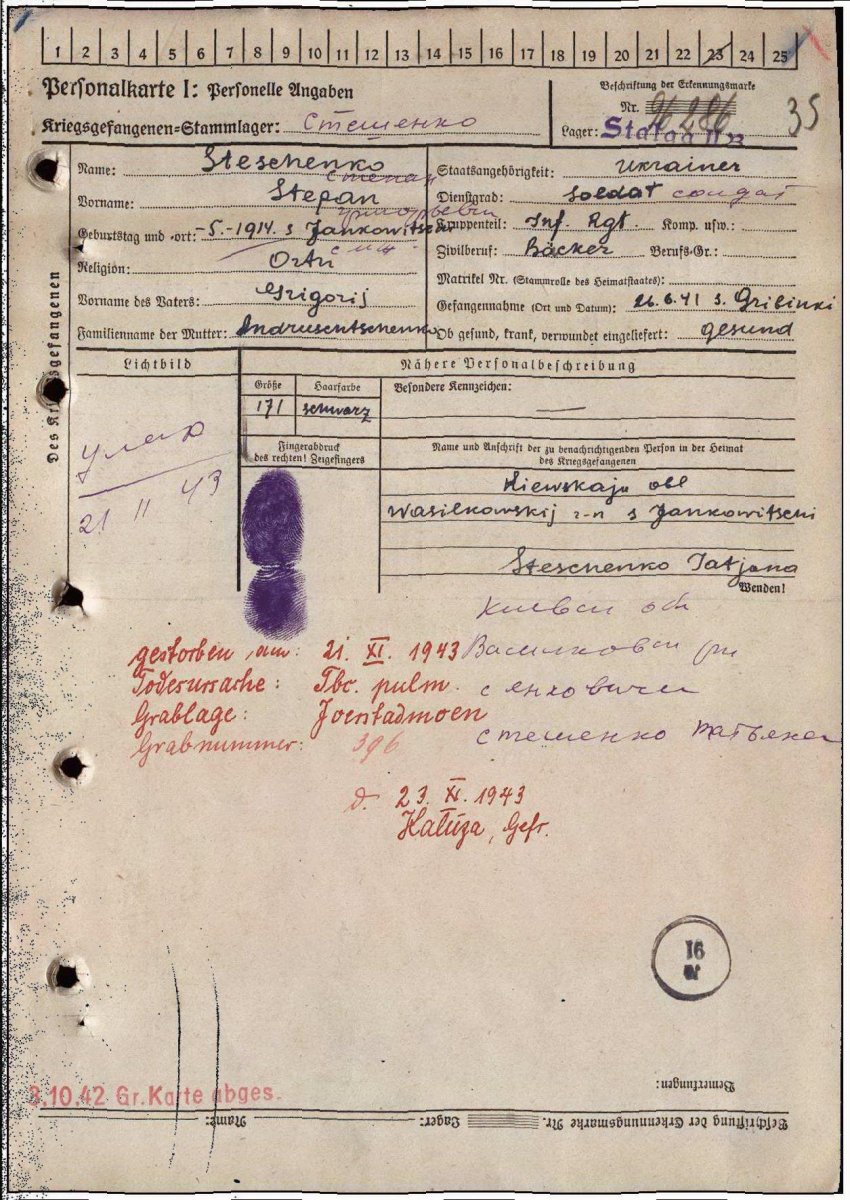 1 2 3 4 5 6 7 8 9 10 11 12 13 14 15 16 17 18 19 20 21 22 23 24 25
Personalkarte I: Personelle Angaben
Kriegsgefangenen=Stammlager: Стешенко
Beschriftung der Erkennungsmarke
Nr. 35
Lager: Stalag II B
Des Kriegsgefangenen
Name: Steschenko
Степан
Vorname: Stepan
Geburtstag und =ort: -5.-1914. s Jankowitschi
Religion: Ortu
Vorname des Vaters: Grigorij
Familienname der Mutter: Andrusentschenko
Staatsangehörigkeit: Ukrainer
Dienstgrad: Soldat солдат
Truppenteil: Inf. Rgt. Komp. usw.:
Zivilberuf: Bäcker Berufs=Gr.:
Matrikel Nr. (Stammrolle des Heimatstaates):
Gefangennahme (Ort und Datum): 26.6.41 s. Gribinki
Ob gesund, krank, verwundet eingeliefert: gesund
Lichtbild
21 II 43
Nähere Personalbeschreibung
Größe Haarfarbe
171 schwarz
Besondere Kennzeichen: —
Fingerabdruck
des rechten! Zeigefingers
Name und Anschrift der zu benachrichtigenden Person in der Heimat
des Kriegsgefangenen
Kiewskaju obl
Wasilkowskij r-n s Jankowitschi
Steschenko Tatjana
Wenden!
Киевск обл
Васильковск рн
с Янковичи
Стешенко Татьяна
gestorben am: 21. XI. 1943
Todesursache: Tbc. pulm.
Grablage: Joerstadmoen
Grabnummer: 396
d. 23. XI. 1943
Katuza, Gefr.
16
3.10.42 Gr. Karte abges.
Bemerkungen:
Beschriftung der Erkennungsmarke Nr. Lager: Name: